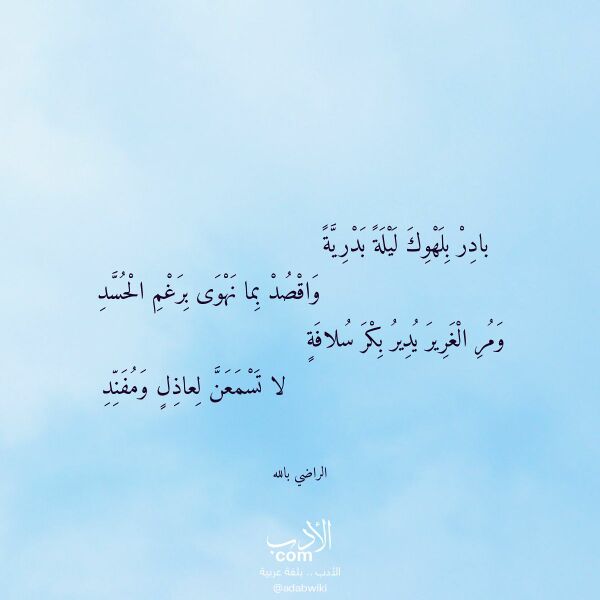 بادِرْ بِلَهْوِكَ لَيْلَةً بَدْرِيَّةً
وَاقْصُدْ بِما نَهْوَى بِرَغْمِ الْحُسَّدِ
وَمُرِ الْغَرِيرَ يُدِيرُ بِكْرَ سُلافَةٍ
لا تَسْمَعَنَّ لِعاذِلٍ وَمُفَنِّدِ
الراضي بالله
الأدب
.com
الأدب .. بلغة عربية
@adabwiki